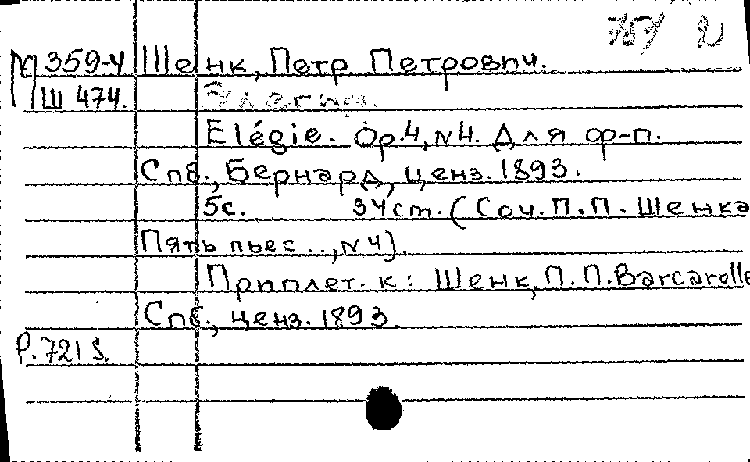 М 359-4 Шенк, Петр Петрович.
Ш 474. Элегия.
Elégie. Op.4, N4. Для ф-п.
Спб., Бернард, ценз. 1893.
5с. 34cm. (Соч. П.П. Шенка
Пять пьес .., N4).
Приплет. к: Шенк, П.П. Barcarolle
Спб., ценз. 1893.